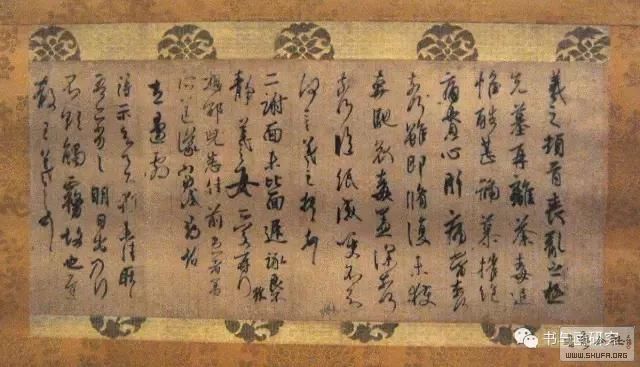 羲之頓首喪亂之極
先墓再離荼毒追
惟酷甚號慕摧絕
痛貫心肝痛當奈何
奈何雖即脩復未獲
奔馳哀毒益深奈何
奈何臨紙感哽不知
何言羲之頓首頓首
二謝面未比面遲詠良
靜羲之女愛再拜
想邪兒悉佳前患者善
所送議當試尋省
左邊劇
得示知足下猶未佳耿
耿吾亦劣劣明日出乃行
不欲觸霧故也遲
散王羲之頓首
WWW.SHUFA.ORG